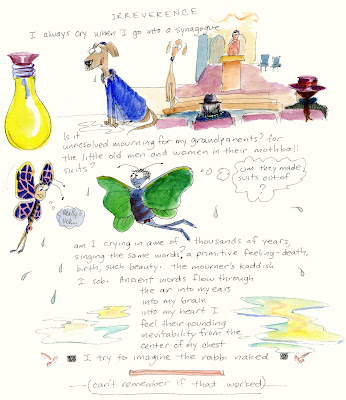 IRREVERENCE
I always cry when I go into a synagogue
Is it
unresolved mourning for my grandparents? for
the little old men and women in their mothball
suits?
um they made
suits out of
?
Really?
am I crying in awe of thousands of years,
singing the same words, a primitive feeling-death,
birth, such beauty. the mourner's kaddish
I sob. Ancient words flow through
the air into my ears
into my brain
into my heart I
feel their pounding
inevitability from the
center of my chest
I try to imagine the rabbi naked
(can't remember if that worked)